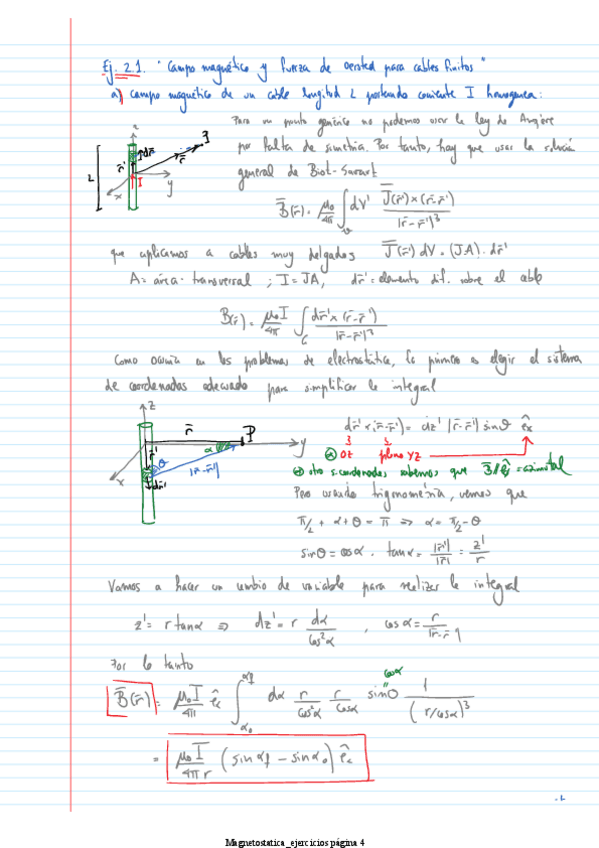 Ej. 2.1. "Campo magnético y fuerza de Oersted para cables finitos"
a) Campo magnético de un cable longitud L portando corriente I homogenea:
Para un punto genérico no podemos usar la ley de Ampère
por falta de simetría. Por tanto, hay que usar la relación
general de Biot-Savart
B̄(r̄) = μ₀/4π ∫ᵥ dV' J̄(r̄')×(r̄-r̄') / |r̄-r̄'|³
que aplicamos a cables muy delgados J̄(r̄') dV = (JA)·dr̄'
A = área transversal ; I = JA, dr̄' = elemento dif. sobre el cable
B̄(r̄) = μ₀I/4π ∫ dr̄'×(r̄-r̄') / |r̄-r̄'|³
Como ocurría en los problemas de electrostática, lo primero es elegir el sistema
de coordenadas adecuado para simplificar la integral
dr̄'×(r̄-r̄') = dz' |r̄-r̄'| sinθ êₓ
OZ plano YZ
otro s. coordenadas sabemos que = azimutal
Pero usando trigonometría, vemos que
π/2 + α + θ = π ⇒ α = π/2 - θ
sinθ = cosα . tanα = |r̄'|/|r̄| = z'/r
Vamos a hacer un cambio de variable para realizar la integral
z' = r tanα ⇒ dz' = r dα/cos²α , cosα = r/|r̄-r̄'|
Por lo tanto
cosα
B̄(r̄) = μ₀I/4π êₓ ∫ dα r/cos²α r/cosα sinθ 1/(r/cosα)³
= μ₀I/4πr (sinαf - sinα₀) êₓ
Magnetostatica_ejercicios página 4